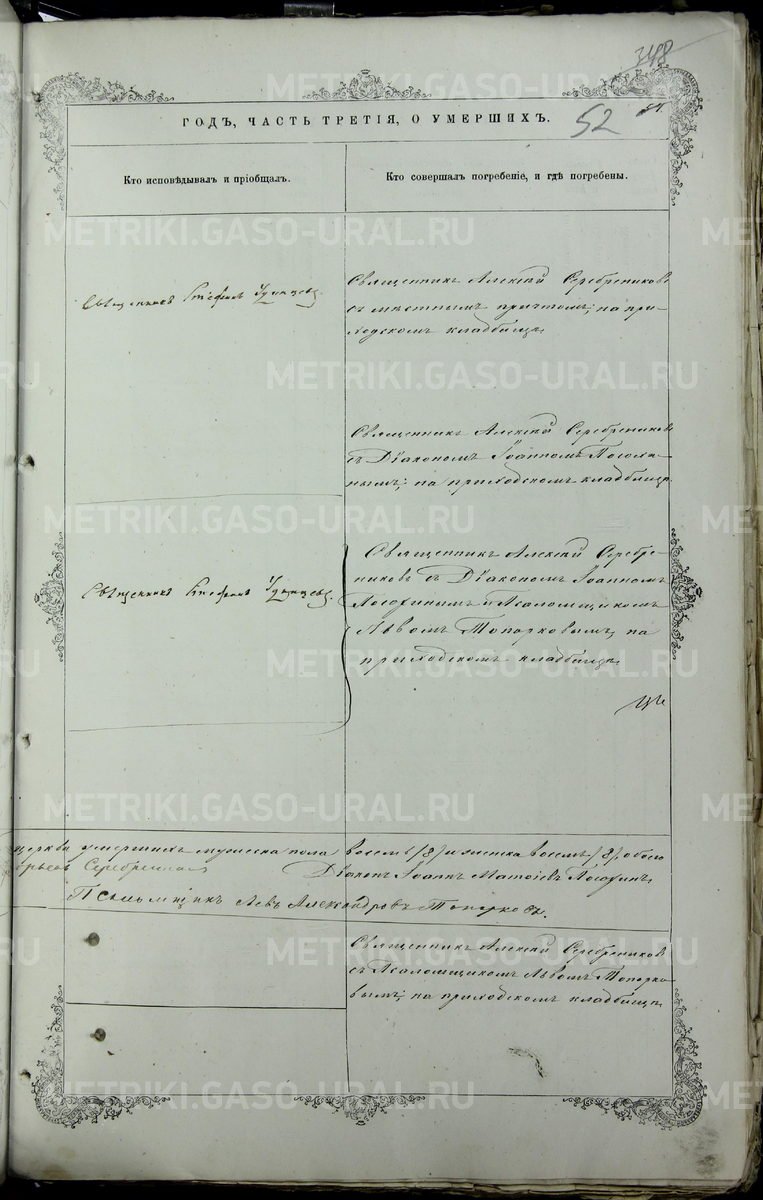 348
ГОДЪ, ЧАСТЬ ТРЕТІЯ, О УМЕРШИХЪ.
52
Кто исповѣдывалъ и пріобщалъ.
Кто совершалъ погребеніе, и гдѣ погребены.
Священникъ Стефанъ
Священникъ Алексій Серебрениковъ
съ мѣстнымъ причтомъ; на при-
ходскомъ кладбищѣ
Священникъ Алексій Серебрениковъ
съ Діакономъ Іоанномъ
на приходскомъ кладбищѣ
Священникъ Стефанъ
Священникъ Алексій Серебре-
никовъ съ Діакономъ Іоанномъ
и Псаломщикомъ
Львомъ Топорковымъ; на
приходскомъ кладбищѣ
церкви умершихъ мужеска пола восемь /8/ и женска восемь /8/ обоего
Діаконъ Іоаннъ
Псаломщикъ Левъ Александровъ Топорковъ.
Священникъ Алексій Серебрениковъ
съ Псаломщикомъ Львомъ Топорко-
вымъ; на приходскомъ кладбищѣ
METRIKI.GASO-URAL.RU